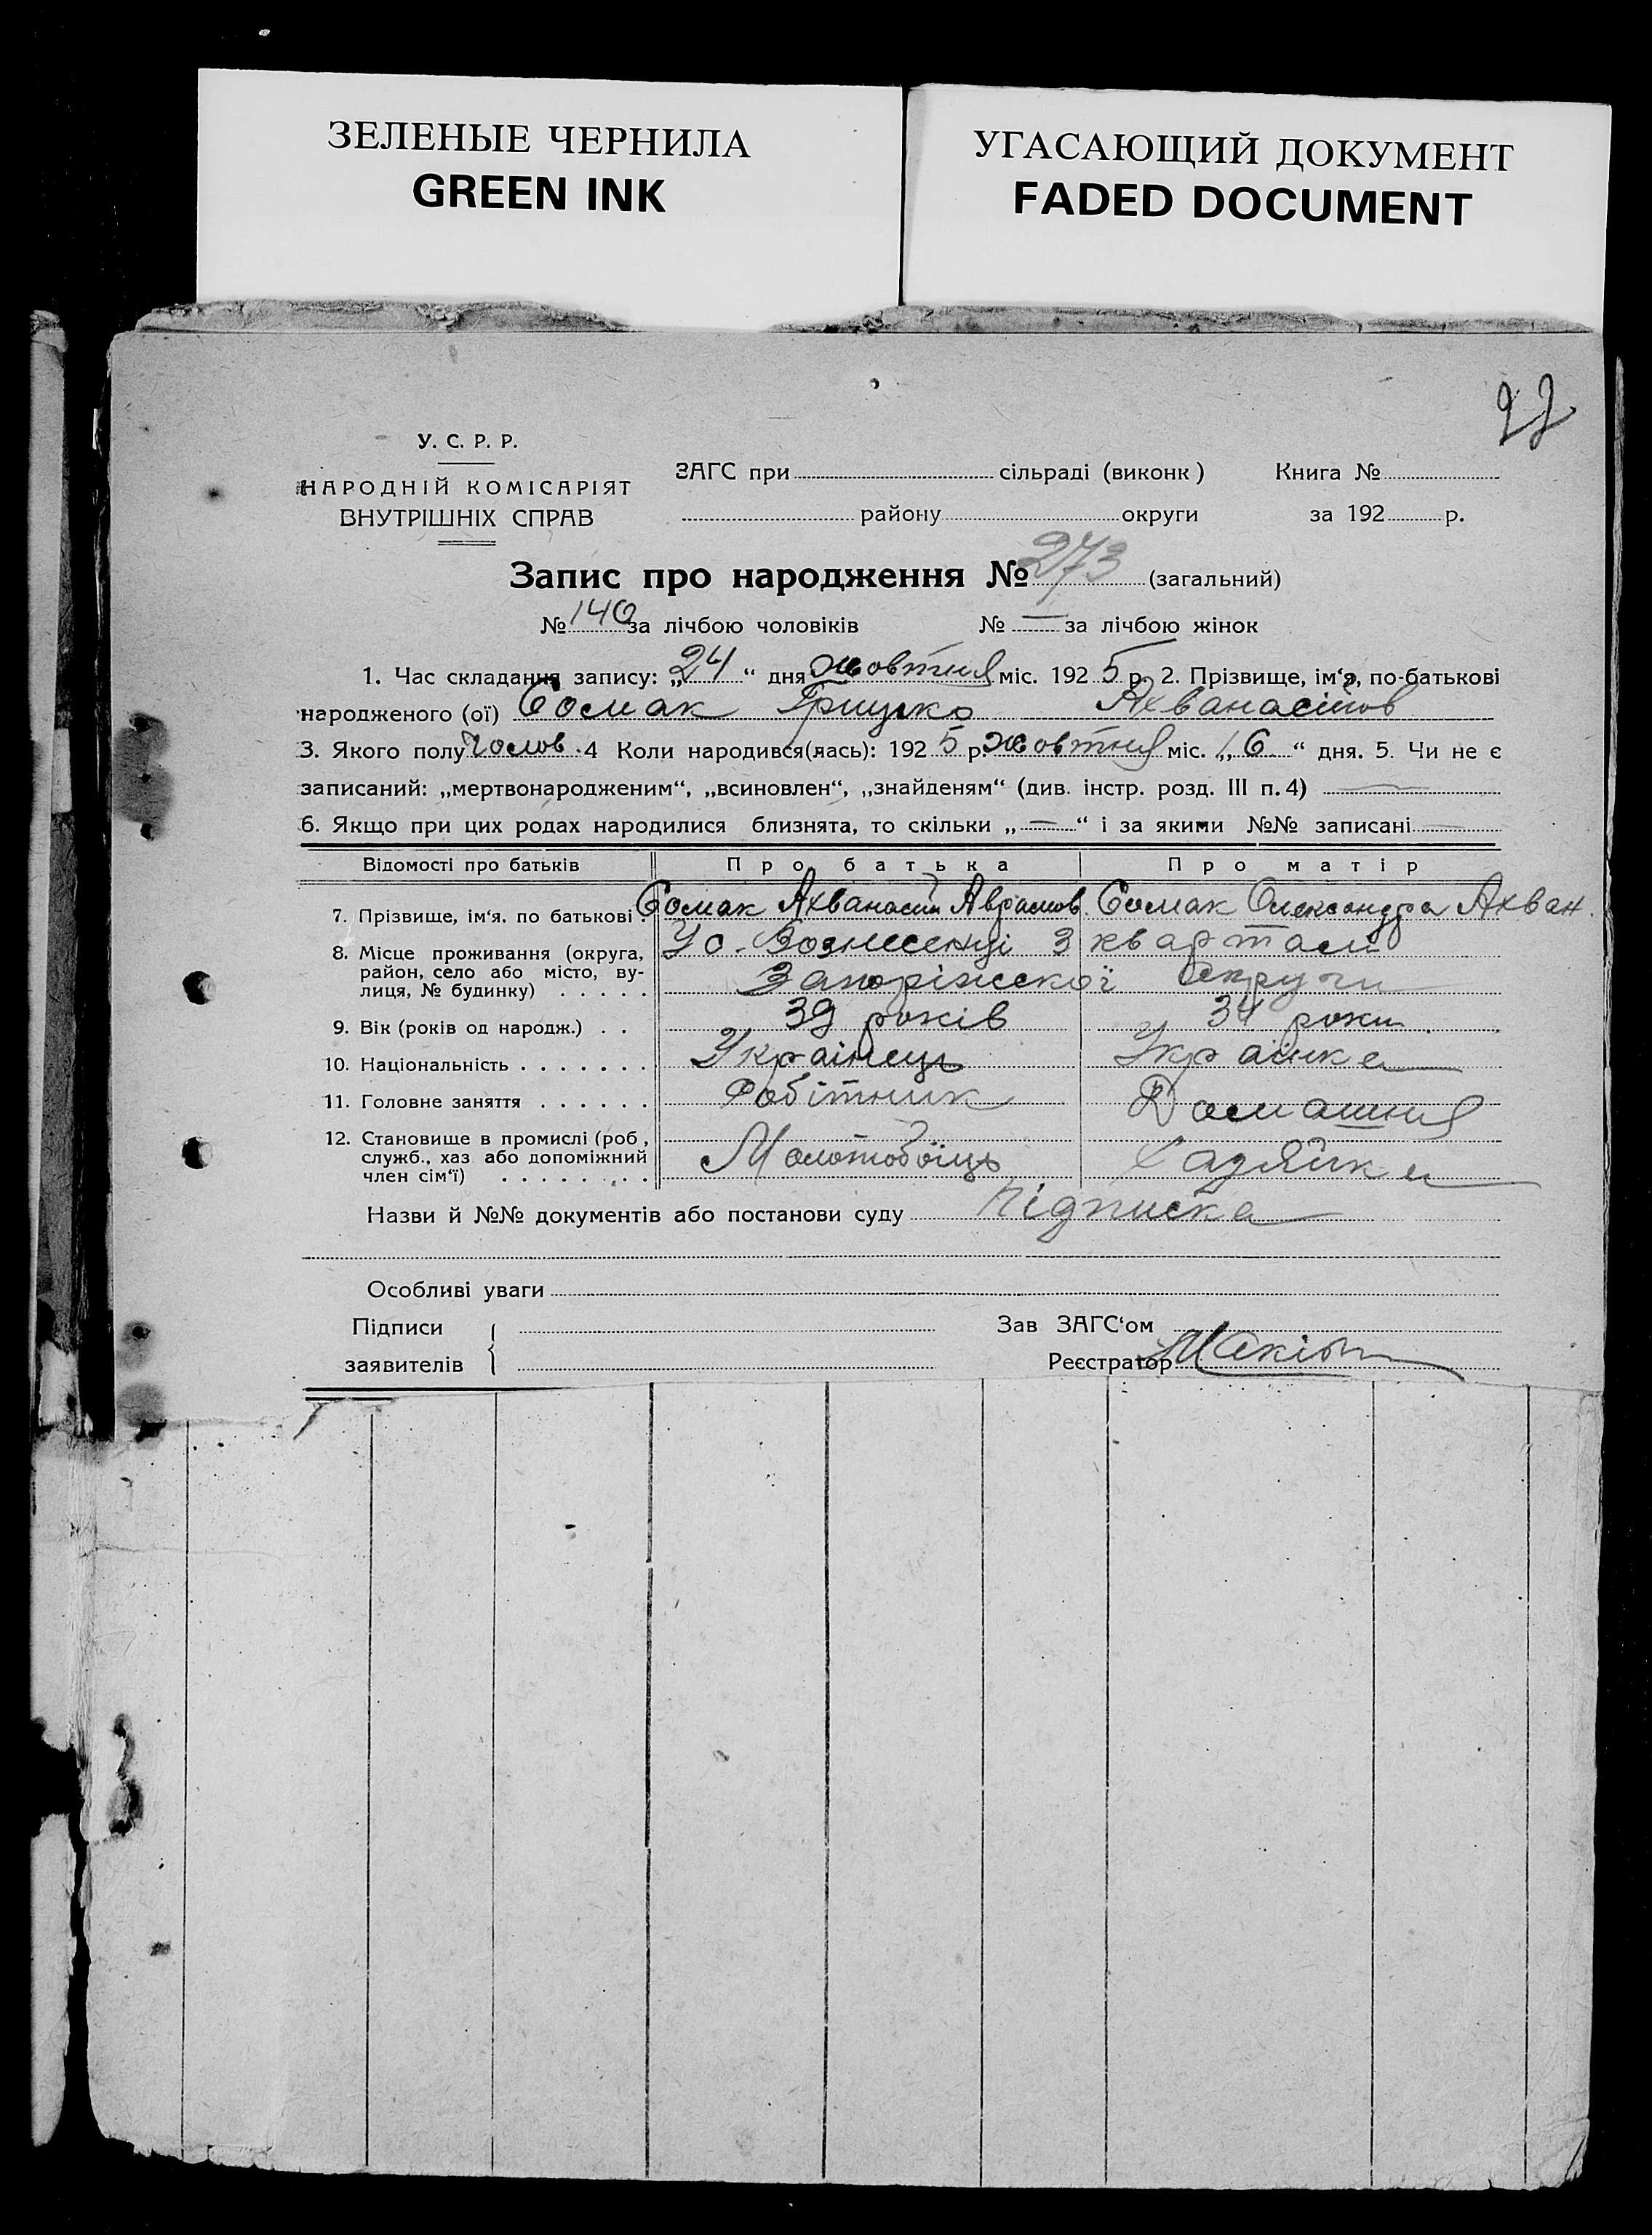 ЗЕЛЕНЫЕ ЧЕРНИЛА
GREEN INK
УГАСАЮЩИЙ ДОКУМЕНТ
FADED DOCUMENT
У. С. Р. Р.
НАРОДНІЙ КОМІСАРІЯТ
ВНУТРІШНІХ СПРАВ
ЗАГС при сільраді (виконк) Книга №
району округи за 192 р.
Запис про народження № 273 (загальний)
№ 140 за лічбою чоловіків № — за лічбою жінок
1. Час складання запису: „24“ дня жовтня міс. 1925 р. 2. Прізвище, ім‘я, по-батькові
народженого (ої) Сомак Грицько Ахванасійов
3. Якого полу чолов. 4 Коли народився(лась): 1925 р. жовтня міс. „16“ дня. 5. Чи не є
записаний: „мертвонародженим“, „всиновлен“, „знайденям“ (див. інстр. розд. III п. 4) —
6. Якщо при цих родах народилися близнята, то скільки „—“ і за якими №№ записані —
Відомості про батьків Про батька Про матір
7. Прізвище, ім‘я, по батькові Сомак Ахванасий Аврамов Сомак Олександра Ахван.
8. Місце проживання (округа, район, село або місто, вулиця, № будинку) . . . . . У с. Вознесенці 3 квартал
Запоріжської Округи
9. Вік (років од народж.) . . 39 років 34 роки
10. Національність . . . . . . . Українець Українка
11. Головне заняття . . . . . . Робітник Домашня
12. Становище в промислі (роб, служб., хаз або допоміжний член сім‘ї) . . . . . . . . Молотобоїць Хазяйка
Назви й №№ документів або постанови суду Підписка
Особливі уваги
Підписи
заявителів
Зав ЗАГС‘ом
Реєстратор